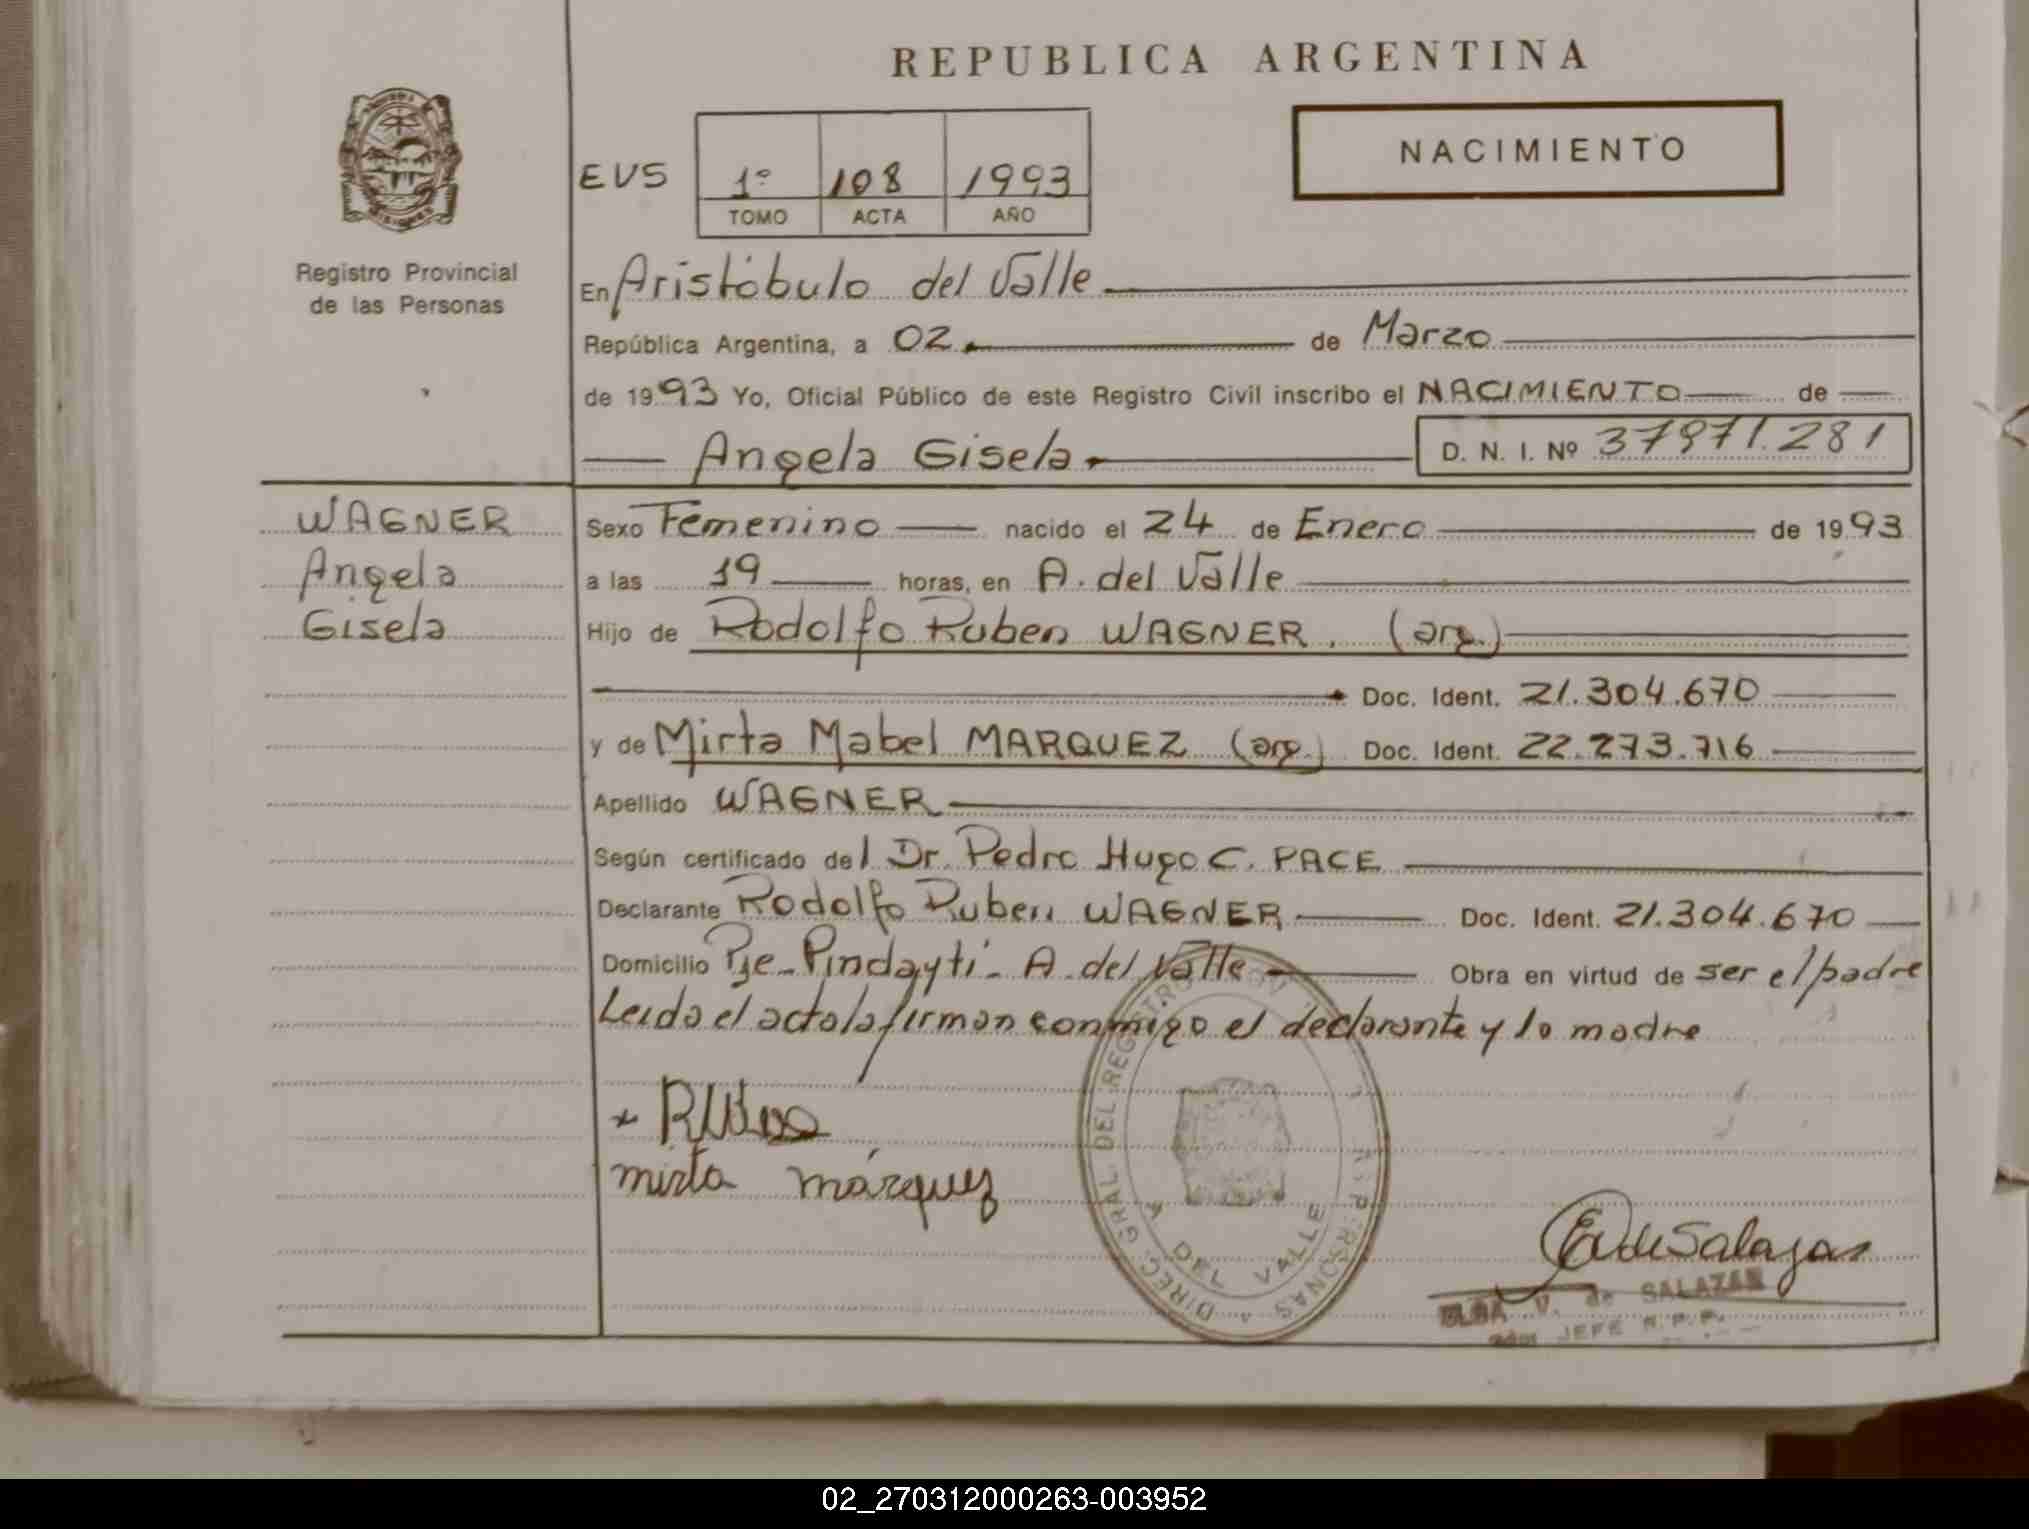 REPUBLICA ARGENTINA
NACIMIENTO
EVS
1º 108 1993
TOMO ACTA AÑO
Registro Provincial
de las Personas
En Aristóbulo del Valle
República Argentina, a 02 de Marzo
de 1993 Yo, Oficial Público de este Registro Civil inscribo el NACIMIENTO de
Angela Gisela D. N. I. Nº 37971.281
WAGNER
Angela
Gisela
Sexo Femenino nacido el 24 de Enero de 1993
a las 19 horas, en A. del Valle
Hijo de Rodolfo Ruben WAGNER. (arg.)
Doc. Ident. 21.304.670
y de Mirta Mabel MARQUEZ (arg.) Doc. Ident. 22.273.716
Apellido WAGNER
Según certificado del Dr. Pedro Hugo C. PACE
Declarante Rodolfo Ruben WAGNER Doc. Ident. 21.304.670
Domicilio Pje-Pindayti- A. del Valle Obra en virtud de ser el padre
Leida el acta la firman conmigo el declarante y la madre
mirta márquez
DIREC. GRAL DEL REGISTRO
PERSONAS
DEL VALLE
EV de Salazar
ELBA V. de SALAZAR
JEFE R.P.P.
02_270312000263-003952